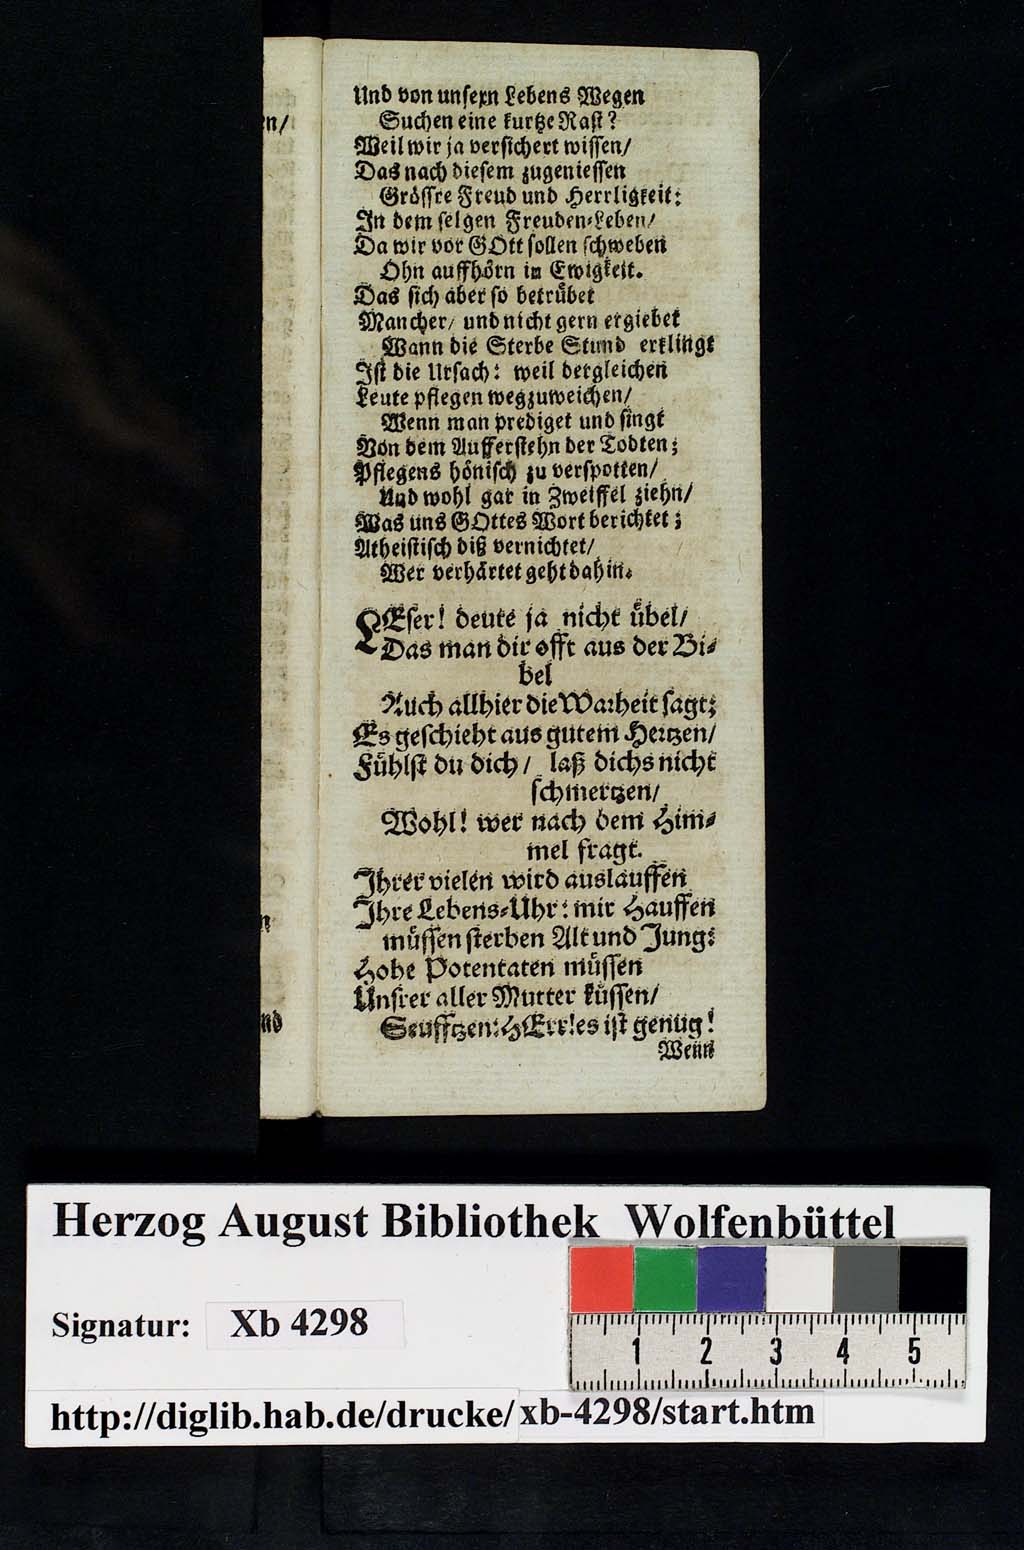 Und von unsern Lebens Wegen
Suchen eine kurtze Rast?
Weil wir ja versichert wissen/
Das nach diesem zugeniessen
Grössre Freud und Herrligkeit:
In dem selgen Freuden-Leben/
Da wir vor GOtt sollen schweben
Ohn auffhörn in Ewigkeit.
Das sich aber so betrübet
Mancher/ und nicht gern ergiebet
Wann die Sterbe Stund erklingt
Ist die Ursach: weil dergleichen
Leute pflegen wegzuweichen/
Wenn man prediget und singt
Von dem Aufferstehn der Todten;
Pflegens hönisch zu verspotten/
Und wohl gar in Zweiffel ziehn/
Was uns GOttes Wort berichtet;
Atheistisch diß vernichtet/
Wer verhärtet geht dahin.
LEser! deute ja nicht übel/
Das man dir offt aus der Bi-
bel
Auch allhier die Warheit sagt;
Es geschieht aus gutem Hertzen/
Fühlst du dich/ laß dichs nicht
schmertzen/
Wohl! wer nach dem Him-
mel fragt.
Ihrer vielen wird auslauffen
Ihre Lebens-Uhr: mir Hauffen
müssen sterben Alt und Jung:
Hohe Potentaten müssen
Unsrer aller Mutter küssen/
Seufftzen: HErr! es ist genug!
Wenn
en/
n
nd
Herzog August Bibliothek Wolfenbüttel
Signatur: Xb 4298
1 2 3 4 5
http://diglib.hab.de/drucke/xb-4298/start.htm